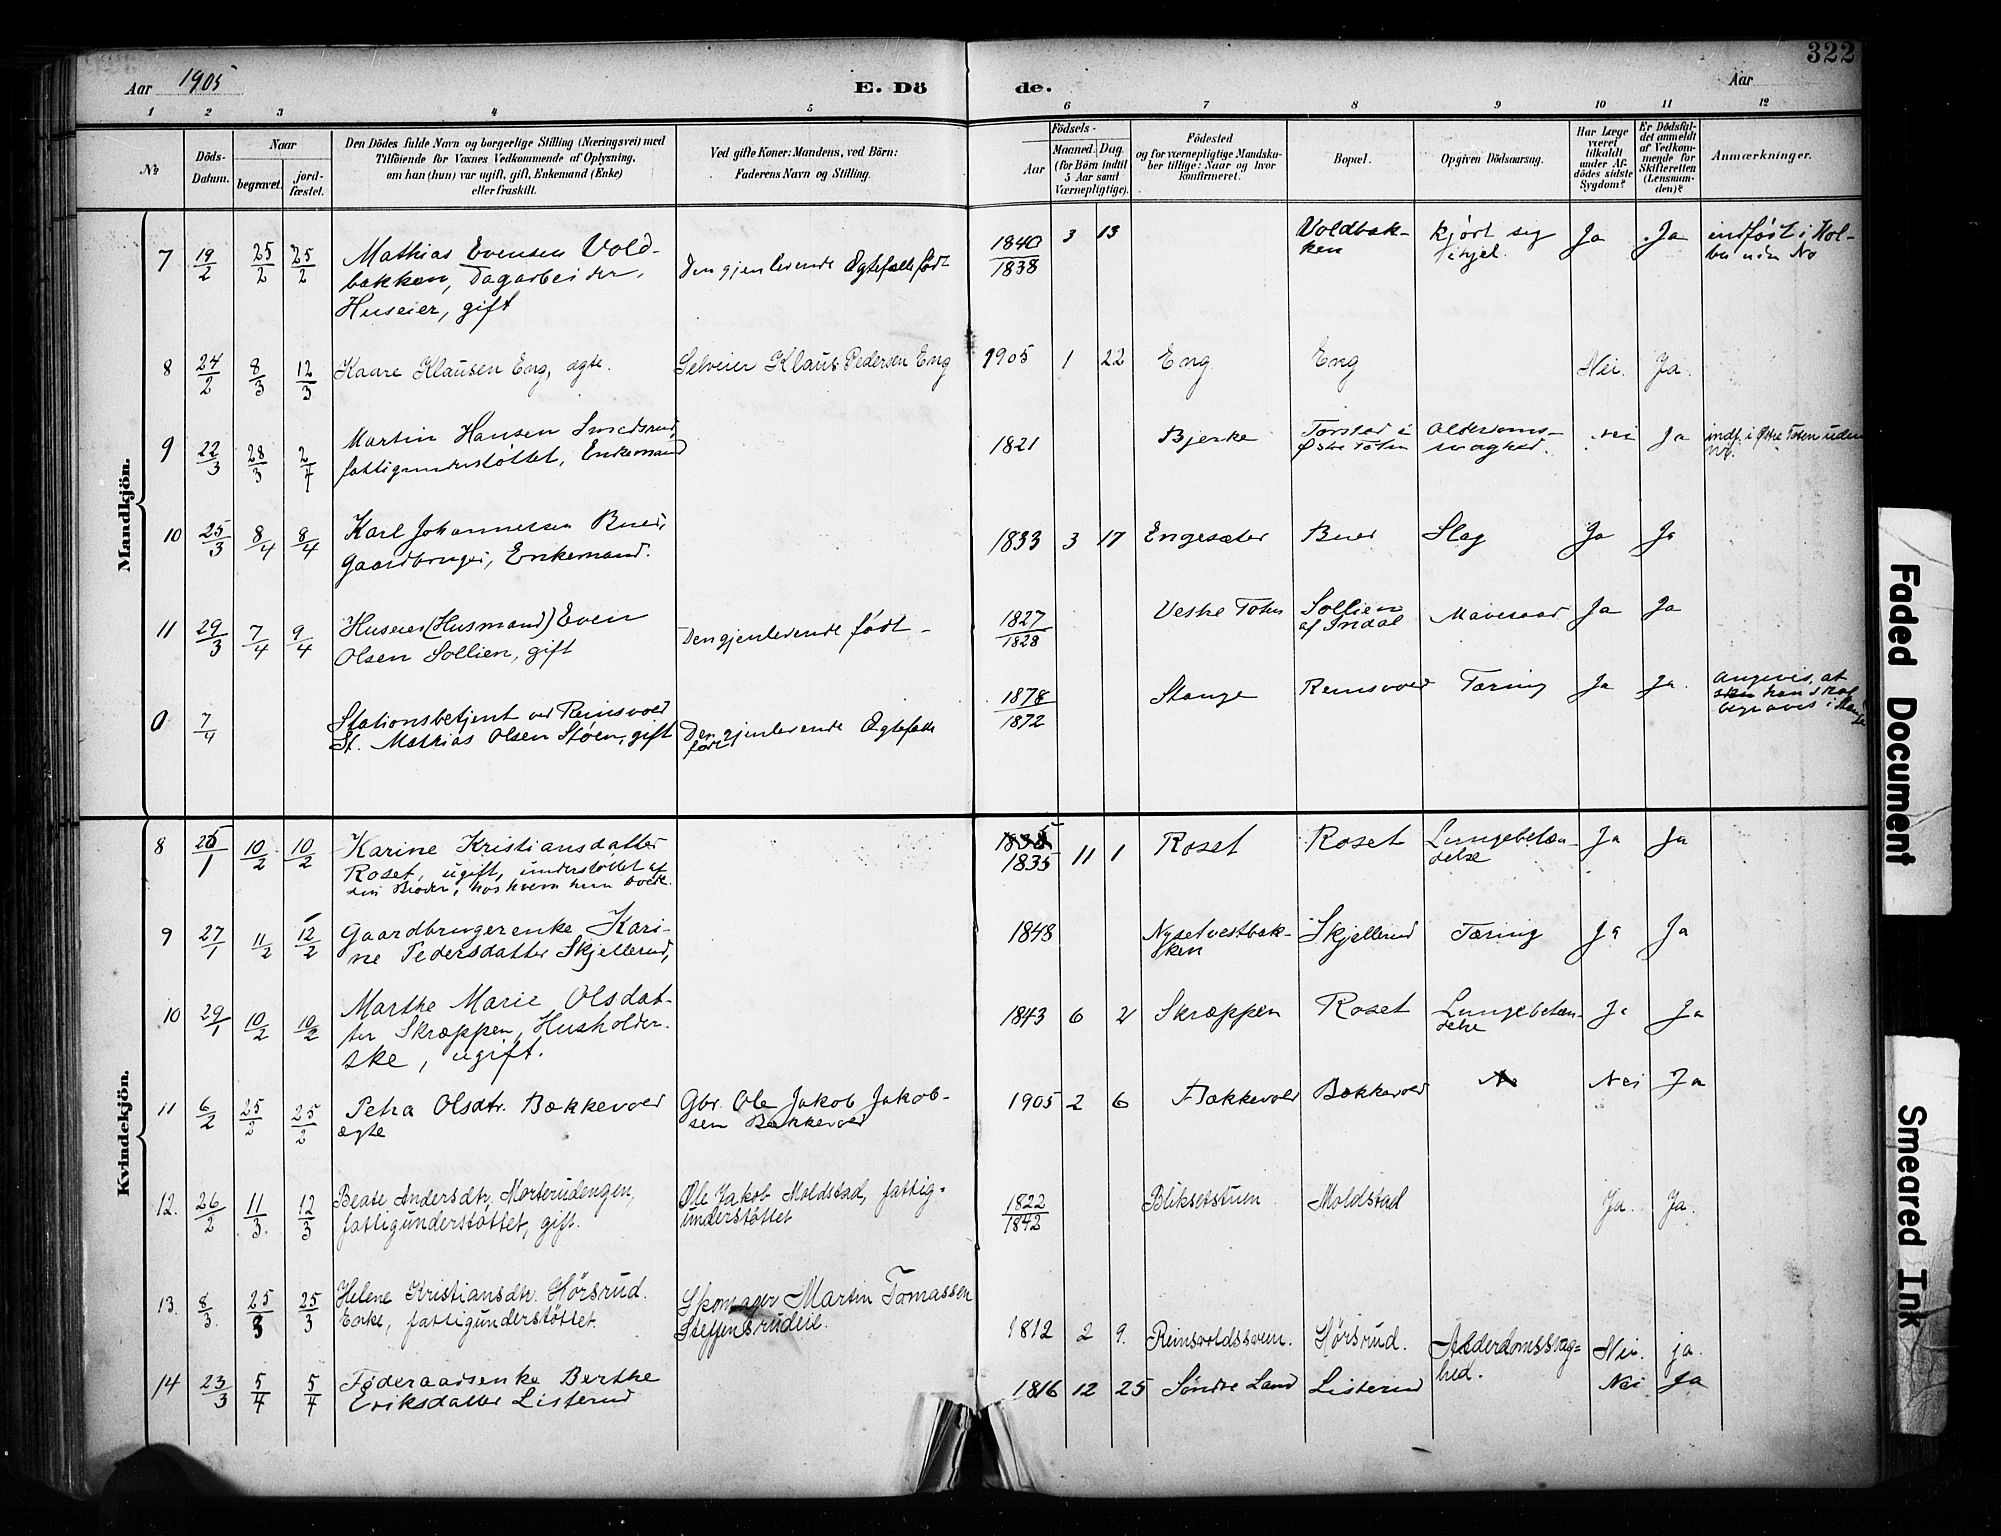 322
Aar 1905
E. Döde.
Aar
1 2 3 4 5 6 7 8 9 10 11 12
No
Döds-Datum.
Naar
begravet.
jordfæstet.
Den Dödes fulde Navn og borgerlige Stilling (Næringsvei) med
Tilföiende for Voxnes Vedkommende af Oplysning,
om han (hun) var ugift, gift, Enkemand (Enke)
eller fraskilt.
Ved gifte Koner: Mandens, ved Börn:
Faderens Navn og Stilling.
Födsels-
Aar
Maaned. Dag.
(for Börn indtil
5 Aar samt
Værnepligtige).
Födested
og for værnepligtige Mandskaber
tillige: Naar og hvor
konfirmeret.
Bopæl.
Opgiven Dödsaarsag.
Har Læge
været
tilkaldt
under Afdödes
sidste
Sygdom?
Er Dödsfaldet
anmeldt
af Vedkommende
for
Skifteretten
(Lensmanden)?
Anmærkninger.
Mandkjön.
7 19/2 25/2 25/2 Mathias Evensen Vold- Den gjenlevende Ægtefælle født 1840 3 13 Voldbak- kjørt seg Ja Ja indført i Kol-
bakken, Dagarbeider, 1838 ken ihjel. bu uden No
Huseier, gift
8 24/2 8/3 12/3 Kaare Klausen Eng, ægte. Selveier Klaus Pedersen Eng 1905 1 22 Eng Eng Nei. Ja.
9 22/3 28/3 2/4 Martin Hansen Smedsrud, 1821 Bjerke Torstad i Alderdoms- Nei Ja indf. i Østre Toten uden
fattigunderstøttet, Enkemand Østre Toten svaghed. No.
10 25/3 8/4 8/4 Karl Johannessen Buer, 1833 3 17 Engesæter Buer Slag Ja Ja
Gaardbruger, Enkemand.
11 29/3 7/4 9/4 Huseier (Husmand) Even Den gjenlevende født - 1827 Vestre Toten Sollien Mavesaar Ja Ja
Olsen Sollien, gift 1828 af Indal
0 7/4 Stationsbetjent ved Reinsvold Den gjenlevende Ægtefælle 1878 Stange Reinsvold Tæring Ja Ja. Angivis. at
St. Mathias Olsen Støen, gift født 1872 han skal
begraves i Stange
Kvindekjön.
8 25/1 10/2 10/2 Karine Kristiansdatter 1835 11 1 Roset Roset Lungebetæn- Ja Ja
Roset, ugift, understøttet af 1835 delse
sin Broder, hos hvem hun boede.
9 27/1 11/2 12/2 Gaardbrugerenke Kari- 1848 Nysetvestbak- Skjellerud Tæring Ja Ja
ne Pedersdatter Skjellerud, ken
10 29/1 10/2 10/2 Marthe Marie Olsdat- 1843 6 2 Skræppen Roset Lungebetæn- Ja Ja
ter Skræppen, Husholder- delse
ske, ugift.
11 6/2 25/2 25/2 Petra Olsdtr. Bækkevold Gbr. Ole Jakob Jakob- 1905 2 6 Bækkevold Bækkevold Nei Ja
ægte sen Bækkevold
12. 26/2 11/3 12/3 Beate Andersdtr. Morterudengen, Ole Jakob Moldstad, fattig- 1822 Bliksetstuen Moldstad Ja. Ja.
fattigunderstøttet, gift. understøttet 1842
13. 8/3 25/3 25/3 Helene Kristiansdtr. Hørsrud. Skomager Martin Tomassen 1812 2 9. Reinsvoldssveen. Hørsrud. Alderdomssvag- Nei. ja.
Enke, fattigunderstøttet. Steffensrudeie. hed.
14 23/3 5/4 5/4 Føderaadsenke Berthe 1816 12 25 Søndre Land Listerud Nei Ja
Eriksdatter Listerud
Faded Document
Smeared Ink